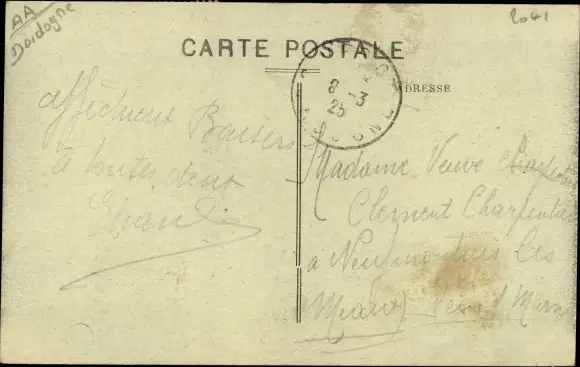 AA
Dordogne
2041
CARTE POSTALE
ADRESSE
8 - 3
25
Affectueux Baisers
à toutes deux
Madame Veuve
Clement Charpentier
à Neufmontiers Les
(Meaux) Seine & Marne